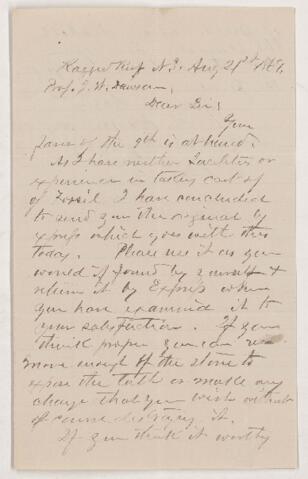 Prof. J. W. Dawson,
Dear Sir;
Your
favor of the 9th is at hand.
As I have neither facilities or
experience in taking cast of
of Fossil I have concluded
to send you the original by
express which goes with this
today. Please use it as you
would if found by yourself &
return it by Express when
you have examined it to
your satisfaction. If you
think proper you can re
move enough of the stone to
expose the teeth or make any
change that you wish without
of course destroying it.
If you think it worthy